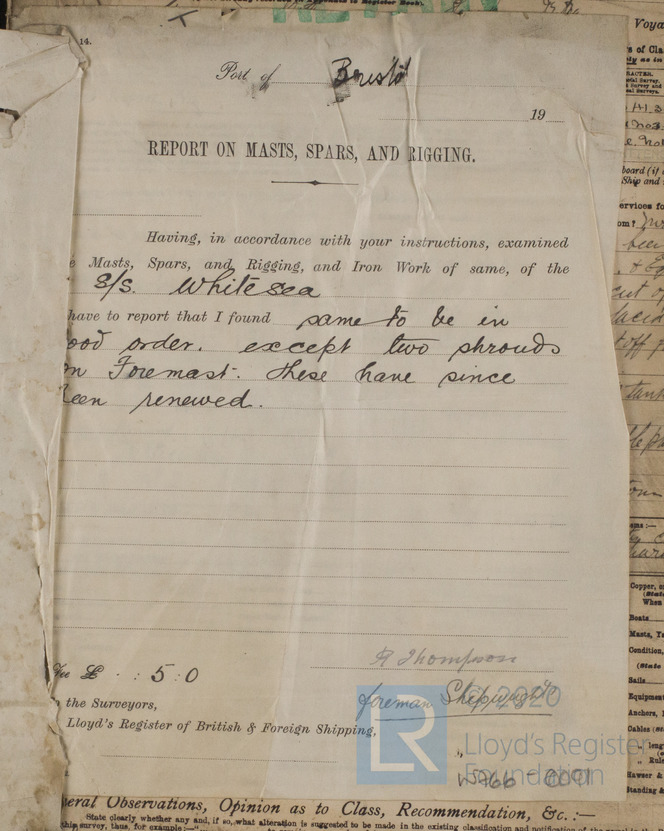 14.
Port of Bristol
19
REPORT ON MASTS, SPARS, AND RIGGING.
Having, in accordance with your instructions, examined
e Masts, Spars, and Rigging, and Iron Work of same, of the
S/S. Whitesea
have to report that I found same to be in
ood order. except two shrouds
on Foremast. these have since
een renewed.
Fee £ - : 5 : 0
R Thompson
foreman Shipwright
the Surveyors,
Lloyd's Register of British & Foreign Shipping,
© 2020
Lloyd's Register
Foundation
W766 - 0091
eral Observations, Opinion as to Class, Recommendation, &c. :—
State clearly whether any and, if so, what alteration is suggested to be made in the existing classification and
this survey, thus, for example:—
Voya
s of Cla
board (if
Ship and
ervices fo
om?
Copper, o
(State
When
Boats
Masts, Ya
Condition,
(State
Sails
Equipment
Anchors,
Cables (
" leng
" Rule
Hawser &
Standing &